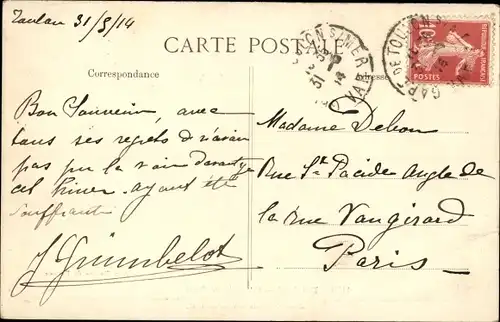 Toulon 31/3/14
CARTE POSTALE
Correspondance
Adresse
Bon Souvenir, avec
tous ses regrets de n'avoir
pas pu la voir davantage
cet hiver ayant été
souffrant
J Grimbelot
Madame Debon
Rue St Placide Angle de
la rue Vaugirard
Paris
GARE DE TOULON
10
POSTES